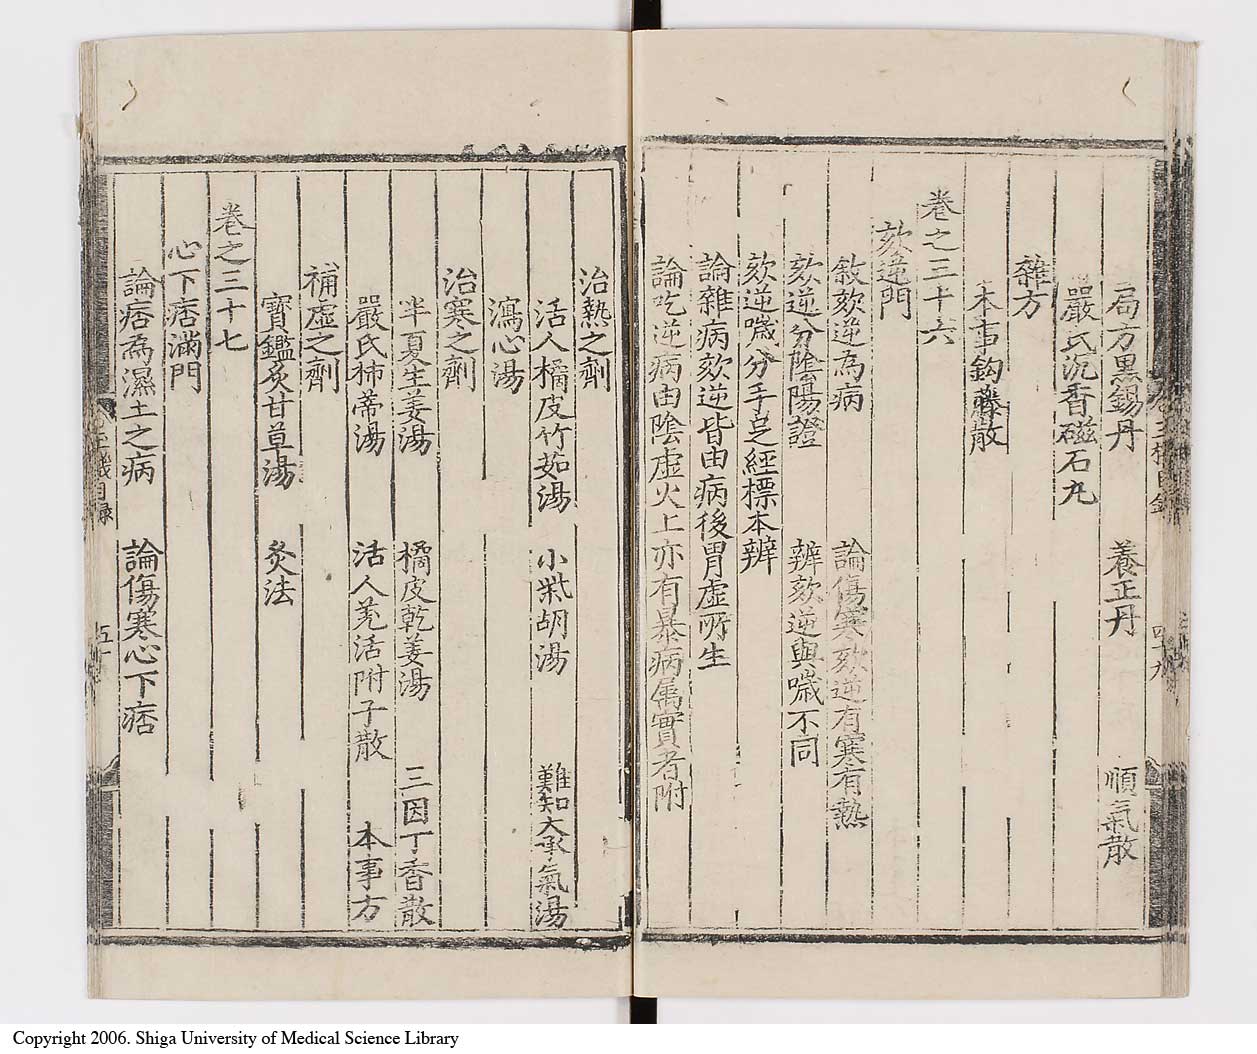 局方黒錫丹 養正丹 順氣散
嚴氏沉香磁石丸
雜方
本事鈎藤散
卷之三十六
欬逆門
敘欬逆為病 論傷寒欬逆有寒有熱
欬逆分陰陽證 辨欬逆與噦不同
欬逆噦分手足經標本辨
論雜病欬逆皆由病後胃虛所生
論吃逆病由陰虛火上亦有暴病属實者附
治熱之劑
活人橘皮竹茹湯 小柴胡湯 難知大承氣湯
瀉心湯
治寒之劑
半夏生姜湯 橘皮乾姜湯 三因丁香散
嚴氏柿蒂湯 活人羌活附子散 本事方
補虛之劑
寳鑑炙甘草湯 灸法
卷之三十七
心下痞滿門
論痞為濕土之病 論傷寒心下痞
Copyright 2006. Shiga University of Medical Science Library